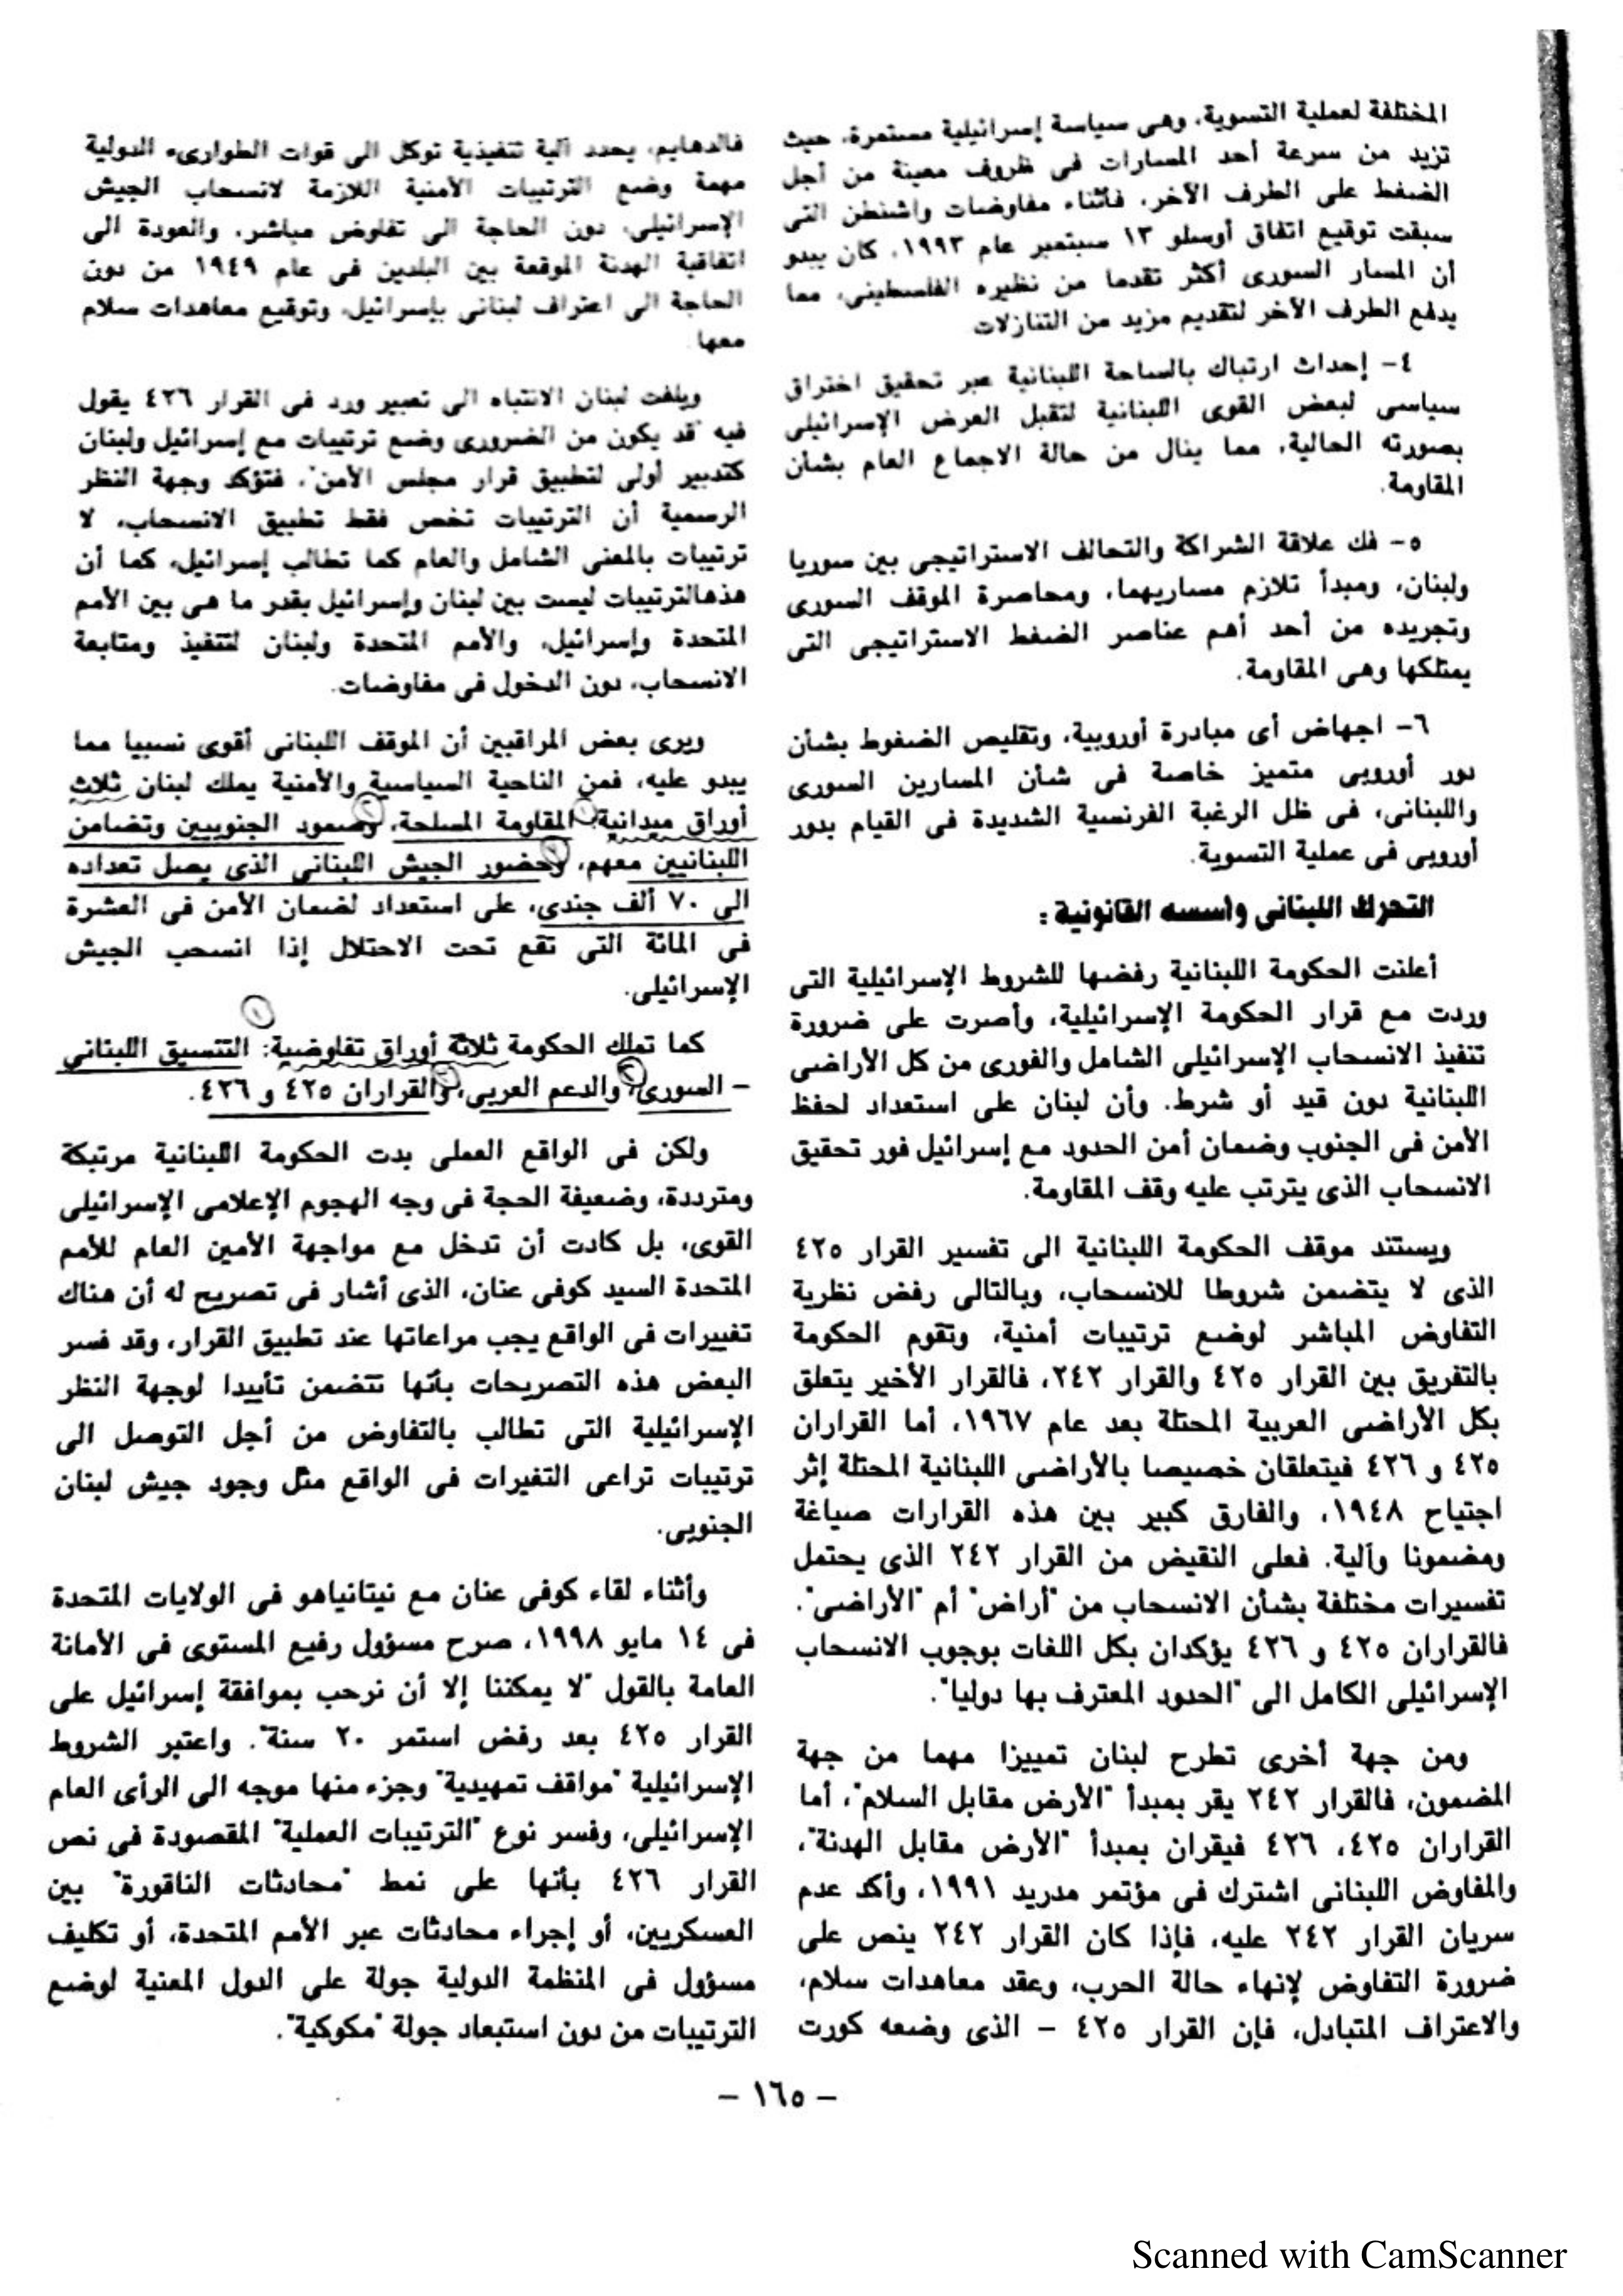 المختلفة لعملية التسوية، وهى سياسة إسرائيلية مستمرة، حيث
تزيد من سرعة أحد المسارات فى ظروف معينة من أجل
الضغط على الطرف الآخر، فأثناء مفاوضات واشنطن التى
سبقت توقيع اتفاق أوسلو ١٣ سبتمبر عام ١٩٩٣، كان يبدو
أن المسار السورى أكثر تقدما من نظيره الفلسطينى، مما
يدفع الطرف الآخر لتقديم مزيد من التنازلات
٤- إحداث ارتباك بالساحة اللبنانية عبر تحقيق اختراق
سياسى لبعض القوى اللبنانية لتقبل العرض الإسرائيلى
بصورته الحالية، مما ينال من حالة الاجماع العام بشأن
المقاومة.
٥- فك علاقة الشراكة والتحالف الاستراتيجى بين سوريا
ولبنان، ومبدأ تلازم مساريهما، ومحاصرة الموقف السورى
وتجريده من أحد أهم عناصر الضغط الاستراتيجى التى
يمتلكها وهى المقاومة.
٦- اجهاض أى مبادرة أوروبية، وتقليص الضغوط بشأن
دور أوروبى متميز خاصة فى شأن المسارين السورى
واللبنانى، فى ظل الرغبة الفرنسية الشديدة فى القيام بدور
أوروبى فى عملية التسوية.
التحرك اللبنانى وأسسه القانونية :
أعلنت الحكومة اللبنانية رفضها للشروط الإسرائيلية التى
وردت مع قرار الحكومة الإسرائيلية، وأصرت على ضرورة
تنفيذ الانسحاب الإسرائيلى الشامل والفورى من كل الأراضى
اللبنانية دون قيد أو شرط. وأن لبنان على استعداد لحفظ
الأمن فى الجنوب وضمان أمن الحدود مع إسرائيل فور تحقيق
الانسحاب الذى يترتب عليه وقف المقاومة.
ويستند موقف الحكومة اللبنانية الى تفسير القرار ٤٢٥
الذى لا يتضمن شروطا للانسحاب، وبالتالى رفض نظرية
التفاوض المباشر لوضع ترتيبات أمنية، وتقوم الحكومة
بالتفريق بين القرار ٤٢٥ والقرار ٢٤٢، فالقرار الأخير يتعلق
بكل الأراضى العربية المحتلة بعد عام ١٩٦٧، أما القراران
٤٢٥ و ٤٢٦ فيتعلقان خصيصا بالأراضى اللبنانية المحتلة إثر
اجتياح ١٩٤٨، والفارق كبير بين هذه القرارات صياغة
ومضمونا وآلية. فعلى النقيض من القرار ٢٤٢ الذى يحتمل
تفسيرات مختلفة بشأن الانسحاب من "أراض" أم "الأراضى".
فالقراران ٤٢٥ و ٤٢٦ يؤكدان بكل اللغات بوجوب الانسحاب
الإسرائيلى الكامل الى "الحدود المعترف بها دوليا".
ومن جهة أخرى تطرح لبنان تمييزا مهما من جهة
المضمون، فالقرار ٢٤٢ يقر بمبدأ "الأرض مقابل السلام"، أما
القراران ٤٢٥، ٤٢٦ فيقران بمبدأ "الأرض مقابل الهدنة"،
والمفاوض اللبنانى اشترك فى مؤتمر مدريد ١٩٩١، وأكد عدم
سريان القرار ٢٤٢ عليه، فإذا كان القرار ٢٤٢ ينص على
ضرورة التفاوض لإنهاء حالة الحرب، وعقد معاهدات سلام،
والاعتراف المتبادل، فإن القرار ٤٢٥ – الذى وضعه كورت
فالدهايم، يحدد آلية تنفيذية توكل الى قوات الطوارىء الدولية
مهمة وضع الترتيبات الأمنية اللازمة لانسحاب الجيش
الإسرائيلى، دون الحاجة الى تفاوض مباشر، والعودة الى
اتفاقية الهدنة الموقعة بين البلدين فى عام ١٩٤٩ من دون
الحاجة الى اعتراف لبنانى بإسرائيل، وتوقيع معاهدات سلام
معها
ويلفت لبنان الانتباه الى تعبير ورد فى القرار ٤٢٦ يقول
فيه "قد يكون من الضرورى وضع ترتيبات مع إسرائيل ولبنان
كتدبير أولى لتطبيق قرار مجلس الأمن"، فتؤكد وجهة النظر
الرسمية أن الترتيبات تخص فقط تطبيق الانسحاب، لا
ترتيبات بالمعنى الشامل والعام كما تطالب إسرائيل، كما أن
هذهالترتيبات ليست بين لبنان وإسرائيل بقدر ما هى بين الأمم
المتحدة وإسرائيل، والأمم المتحدة ولبنان لتنفيذ ومتابعة
الانسحاب، دون الدخول فى مفاوضات.
ويرى بعض المراقبين أن الموقف اللبنانى أقوى نسبيا مما
يبدو عليه، فمن الناحية السياسية والأمنية يملك لبنان ثلاث
أوراق ميدانية: ١ المقاومة المسلحة، ٢ وصمود الجنوبيين وتضامن
اللبنانيين معهم، ٣ وحضور الجيش اللبنانى الذى يصل تعداده
الى ٧٠ ألف جندى، على استعداد لضمان الأمن فى العشرة
فى المائة التى تقع تحت الاحتلال إذا انسحب الجيش
الإسرائيلى.
كما تملك الحكومة ثلاثة أوراق تفاوضية: ١ التنسيق اللبنانى
– السورى، ٢ والدعم العربى، ٣ والقراران ٤٢٥ و ٤٢٦.
ولكن فى الواقع العملى بدت الحكومة اللبنانية مرتبكة
ومترددة، وضعيفة الحجة فى وجه الهجوم الإعلامى الإسرائيلى
القوى، بل كادت أن تدخل مع مواجهة الأمين العام للأمم
المتحدة السيد كوفى عنان، الذى أشار فى تصريح له أن هناك
تغييرات فى الواقع يجب مراعاتها عند تطبيق القرار، وقد فسر
البعض هذه التصريحات بأنها تتضمن تأييدا لوجهة النظر
الإسرائيلية التى تطالب بالتفاوض من أجل التوصل الى
ترتيبات تراعى التغيرات فى الواقع مثل وجود جيش لبنان
الجنوبى.
وأثناء لقاء كوفى عنان مع نيتانياهو فى الولايات المتحدة
فى ١٤ مايو ١٩٩٨، صرح مسؤول رفيع المستوى فى الأمانة
العامة بالقول "لا يمكننا إلا أن نرحب بموافقة إسرائيل على
القرار ٤٢٥ بعد رفض استمر ٢٠ سنة". واعتبر الشروط
الإسرائيلية "مواقف تمهيدية" وجزء منها موجه الى الرأى العام
الإسرائيلى، وفسر نوع "الترتيبات العملية" المقصودة فى نص
القرار ٤٢٦ بأنها على نمط "محادثات الناقورة" بين
العسكريين، أو إجراء محادثات عبر الأمم المتحدة، أو تكليف
مسؤول فى المنظمة الدولية جولة على الدول المعنية لوضع
الترتيبات من دون استبعاد جولة "مكوكية".
– ١٦٥ –
Scanned with CamScanner